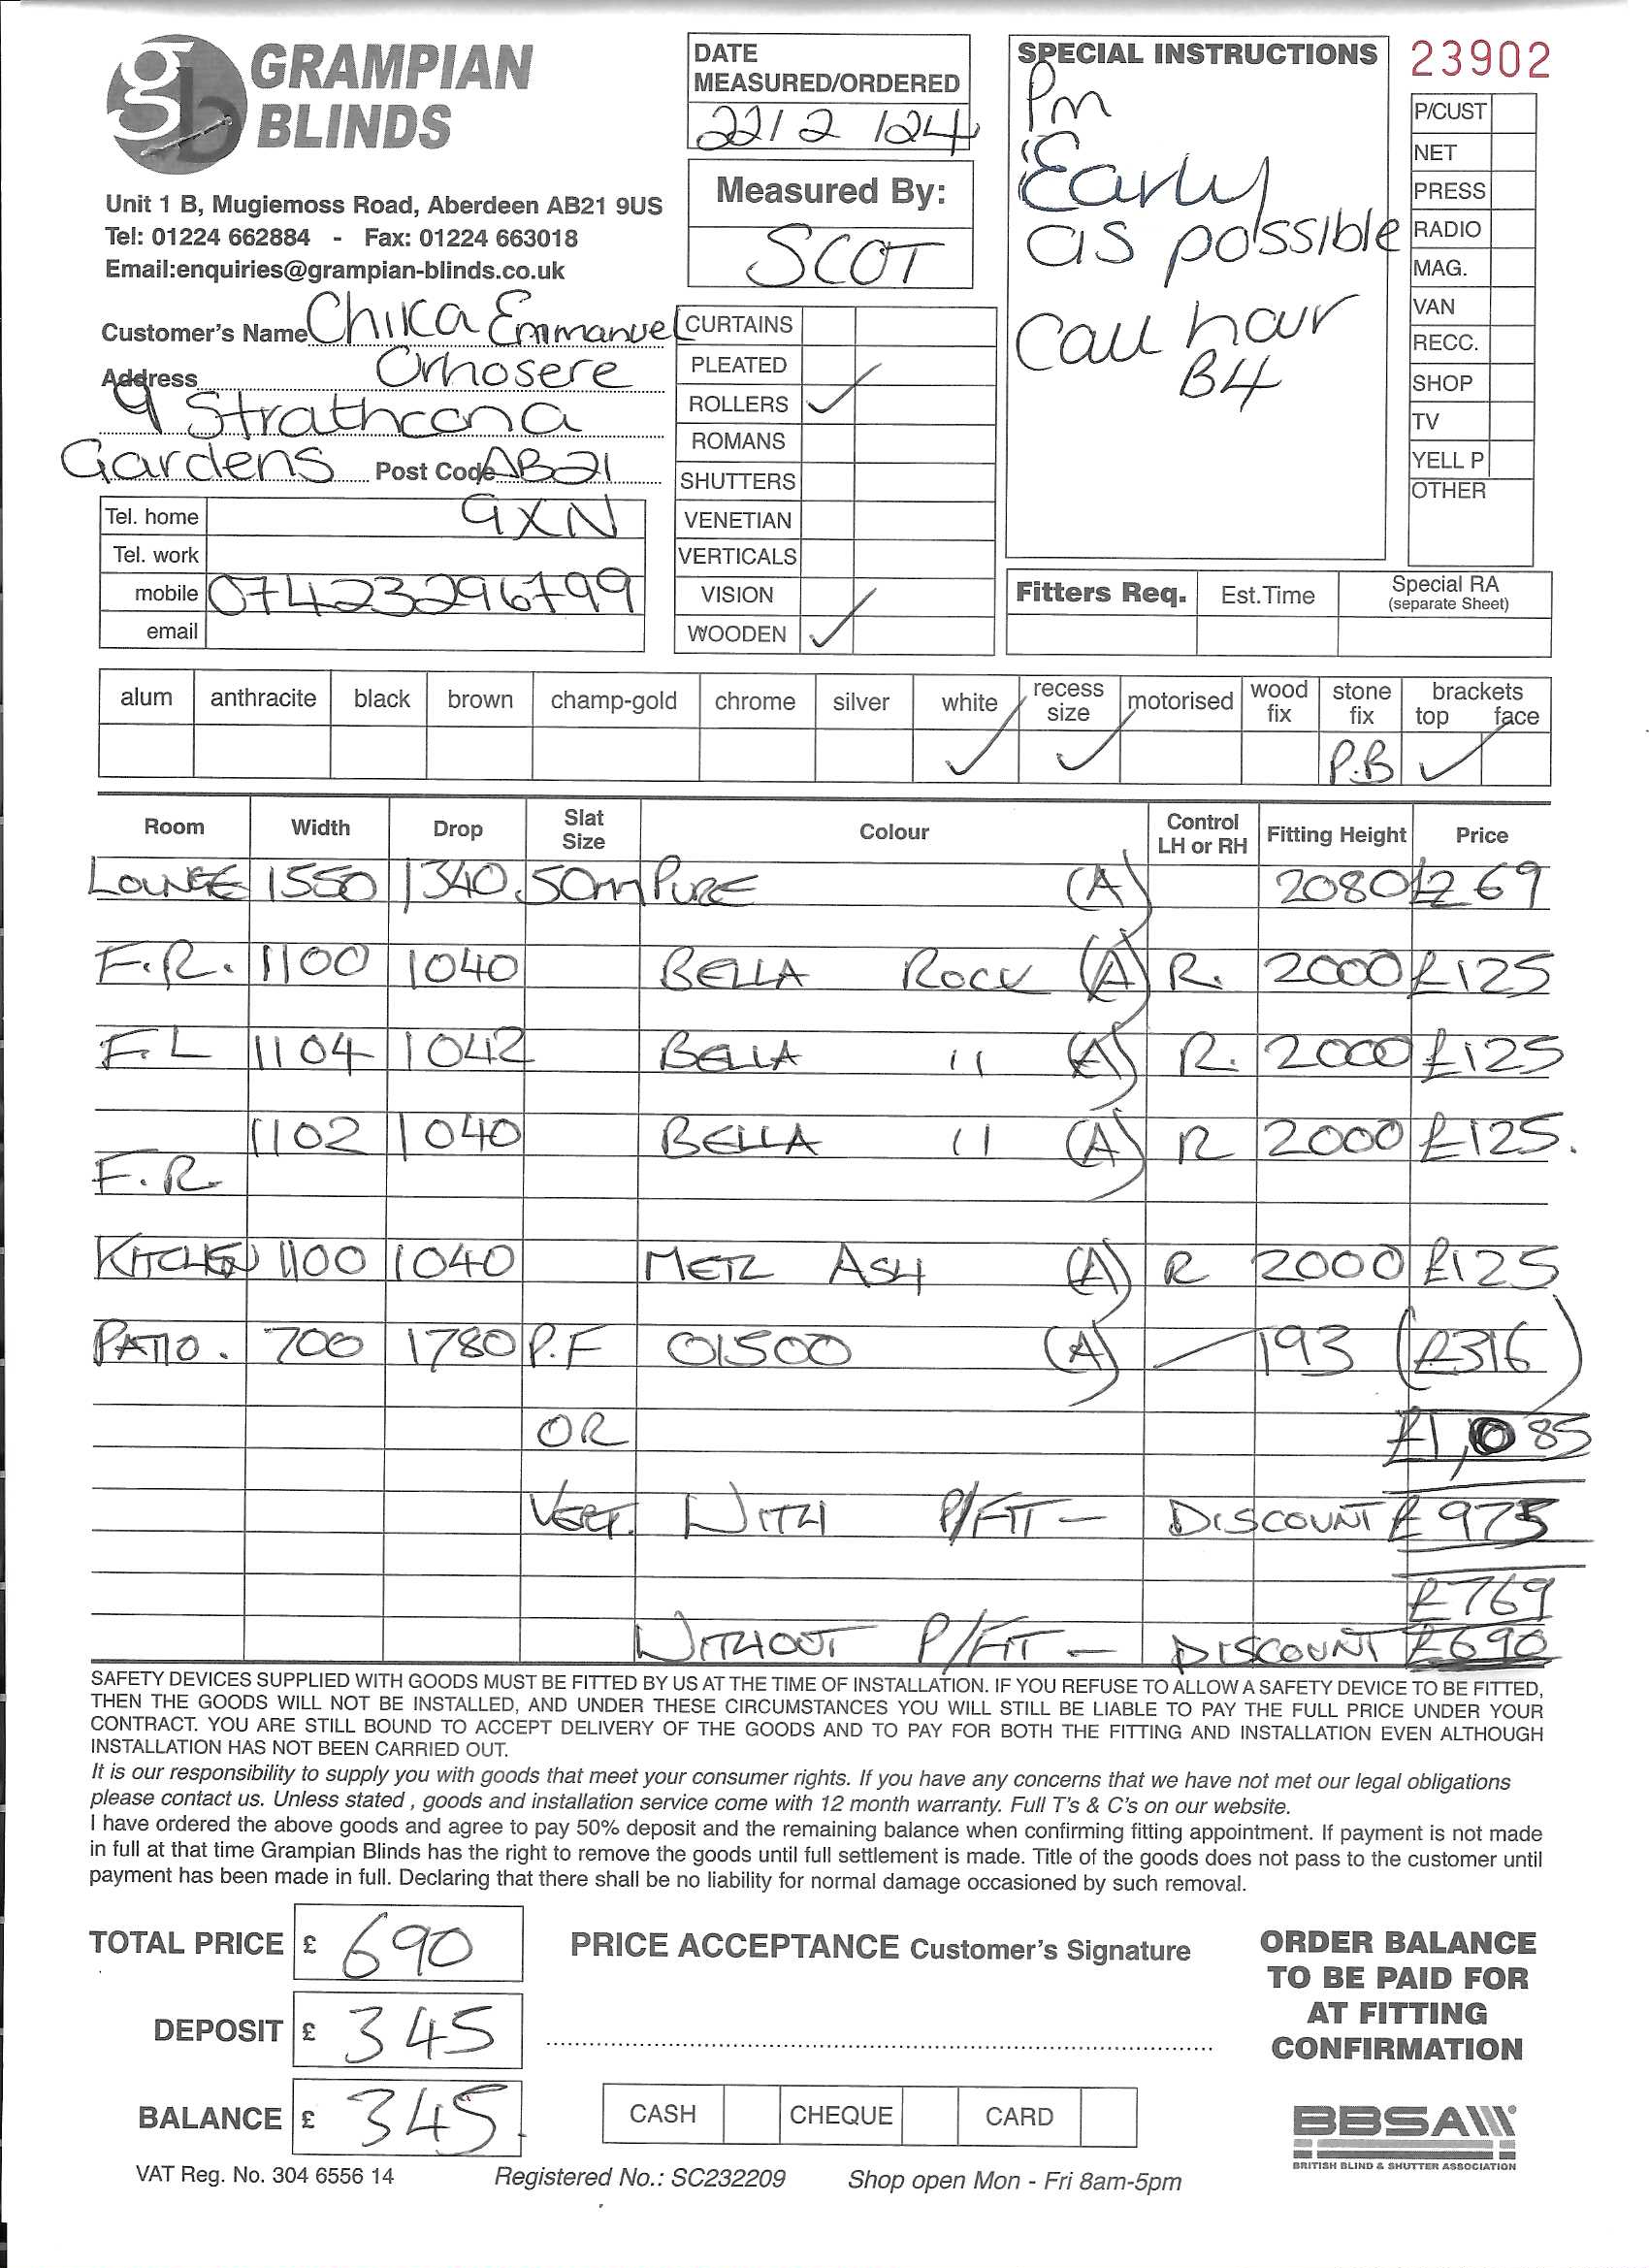 GRAMPIAN
BLINDS
Unit 1 B, Mugiemoss Road, Aberdeen AB21 9US
Tel: 01224 662884 - Fax: 01224 663018
Email:enquiries@grampian-blinds.co.uk
DATE
MEASURED/ORDERED
22/2/24
Measured By:
SCOT
SPECIAL INSTRUCTIONS
Pm
Early
as possible
Call hour
B4
23902
P/CUST
NET
PRESS
RADIO
MAG.
VAN
RECC.
SHOP
TV
YELL P
OTHER
Customer's Name Chika Emmanuel
Orhosere
Address
9 Strathcona
Gardens Post Code AB21
9XN
Tel. home
Tel. work
mobile 07423296799
email
CURTAINS
PLEATED
ROLLERS ✓
ROMANS
SHUTTERS
VENETIAN
VERTICALS
VISION
WOODEN ✓
Fitters Req. Est.Time Special RA
(separate Sheet)
alum anthracite black brown champ-gold chrome silver white recess size motorised wood fix stone fix brackets top face
✓ ✓ P.B ✓
Room Width Drop Slat Size Colour Control LH or RH Fitting Height Price
LOUNGE 1550 1340 50m PURE (A) 2080 £269
F.R. 1100 1040 BELLA ROCK (A) R. 2000 £125
F.L 1104 1042 BELLA 11 (A) R. 2000 £125
1102 1040 BELLA 11 (A) R 2000 £125.
F.R.
KITCHEN 1100 1040 METZ ASH (A) R 2000 £125
PATIO. 700 1780 P.F 01500 (A) — 193 (£316)
OR £1,085
VERT. WITH P/FIT - DISCOUNT £975
£769
WITHOUT P/FIT - DISCOUNT £690
SAFETY DEVICES SUPPLIED WITH GOODS MUST BE FITTED BY US AT THE TIME OF INSTALLATION. IF YOU REFUSE TO ALLOW A SAFETY DEVICE TO BE FITTED,
THEN THE GOODS WILL NOT BE INSTALLED, AND UNDER THESE CIRCUMSTANCES YOU WILL STILL BE LIABLE TO PAY THE FULL PRICE UNDER YOUR
CONTRACT. YOU ARE STILL BOUND TO ACCEPT DELIVERY OF THE GOODS AND TO PAY FOR BOTH THE FITTING AND INSTALLATION EVEN ALTHOUGH
INSTALLATION HAS NOT BEEN CARRIED OUT.
It is our responsibility to supply you with goods that meet your consumer rights. If you have any concerns that we have not met our legal obligations
please contact us. Unless stated , goods and installation service come with 12 month warranty. Full T's & C's on our website.
I have ordered the above goods and agree to pay 50% deposit and the remaining balance when confirming fitting appointment. If payment is not made
in full at that time Grampian Blinds has the right to remove the goods until full settlement is made. Title of the goods does not pass to the customer until
payment has been made in full. Declaring that there shall be no liability for normal damage occasioned by such removal.
TOTAL PRICE £ 690
DEPOSIT £ 345
BALANCE £ 345.
PRICE ACCEPTANCE Customer's Signature
CASH CHEQUE CARD
ORDER BALANCE
TO BE PAID FOR
AT FITTING
CONFIRMATION
BBSA
BRITISH BLIND & SHUTTER ASSOCIATION
VAT Reg. No. 304 6556 14 Registered No.: SC232209 Shop open Mon - Fri 8am-5pm